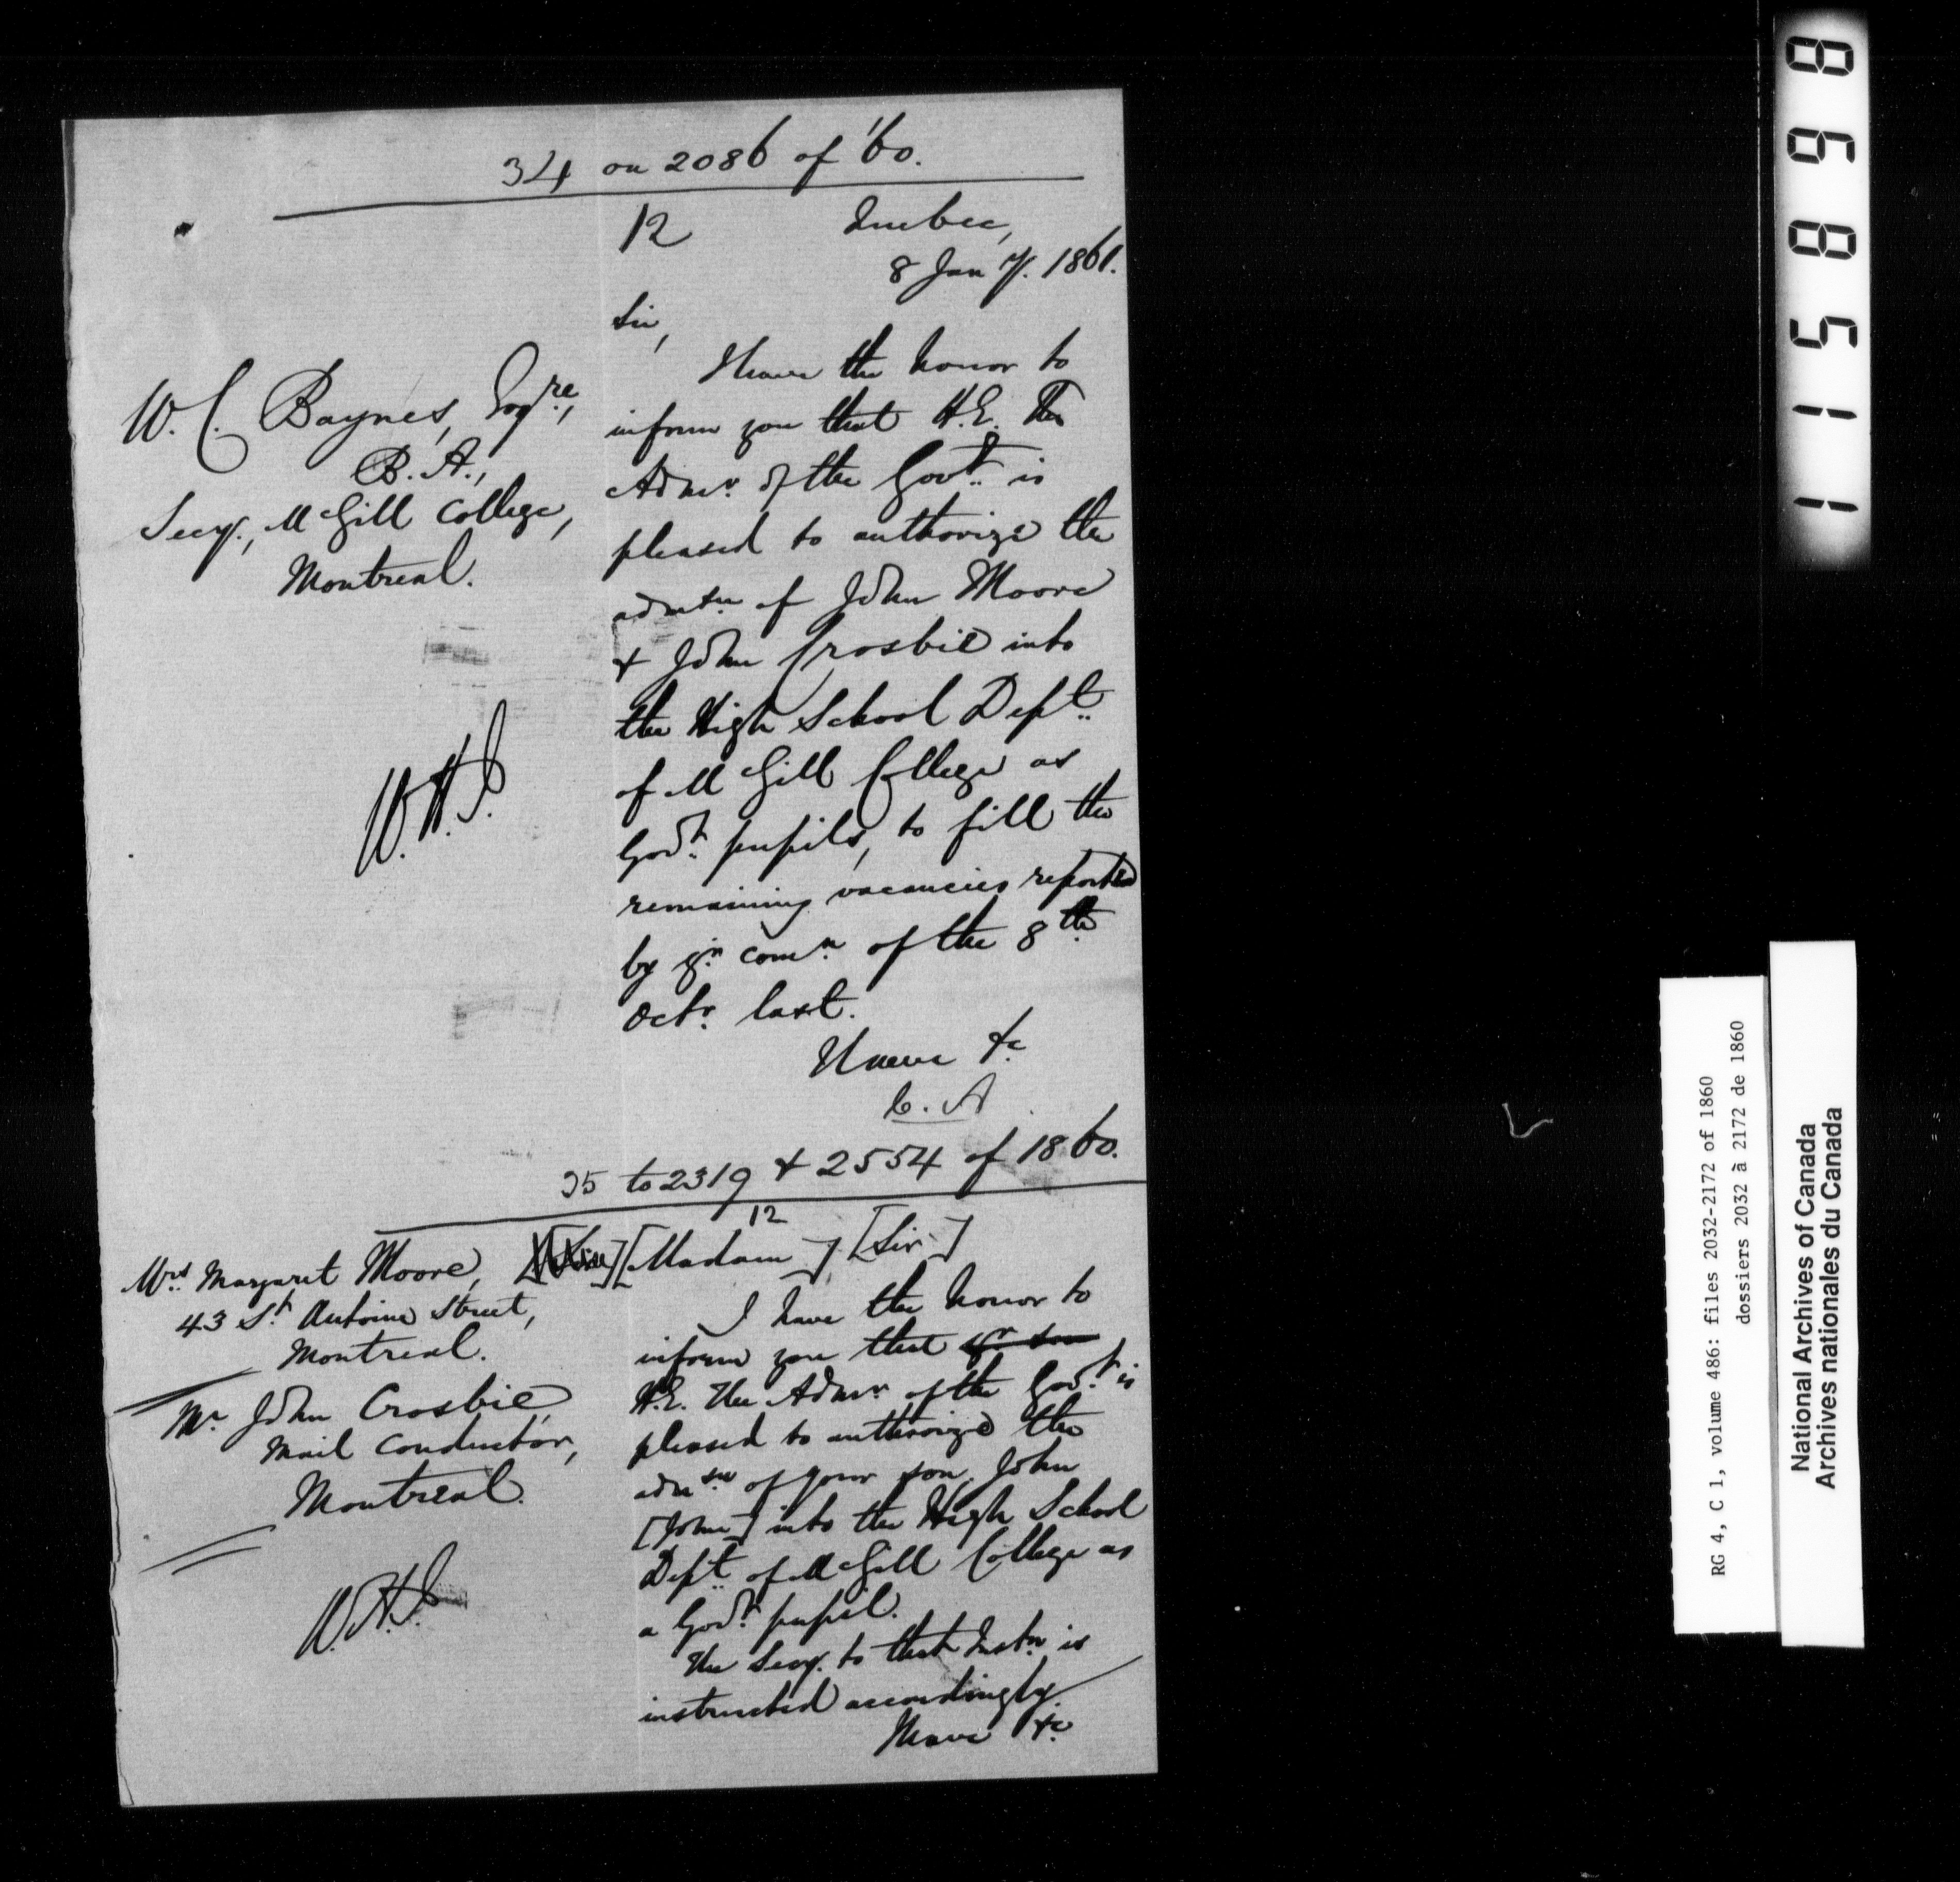 34 on 2086 of '60.
12 Quebec,
8 Jany. 1861.
Sir,
W. C. Baynes, Esqre,
B. A.,
Secy., McGill College,
Montreal.
I have the honor to
inform you that H.E. The
Admr. of the Govt. is
pleased to authorize the
admsn of John Moore
& John Crosbie into
the High School Dept.
of McGill College as
Govt. pupils, to fill the
remaining vacancies reported
by yr. comn. of the 8th
Octr. last.
I have &c
C. A
W.H.J.
35 to 2319 & 2554 of 1860.
12
[Madam] [Sir]
Mrs. Margaret Moore,
43 St. Antoine Street,
Montreal.
Mr. John Crosbie,
Mail Conductor,
Montreal.
W.H.J.
I have the honor to
inform you that yr son
H.E. The Admr. of the Govt. is
pleased to authorize the
admsn of your son, John
[John] into the High School
Dept. of McGill College as
a Govt. pupil.
The Secy. to that Instn. is
instructed accordingly.
I have &c
115898
RG 4, C 1, volume 486: files 2032-2172 of 1860
dossiers 2032 à 2172 de 1860
National Archives of Canada
Archives nationales du Canada